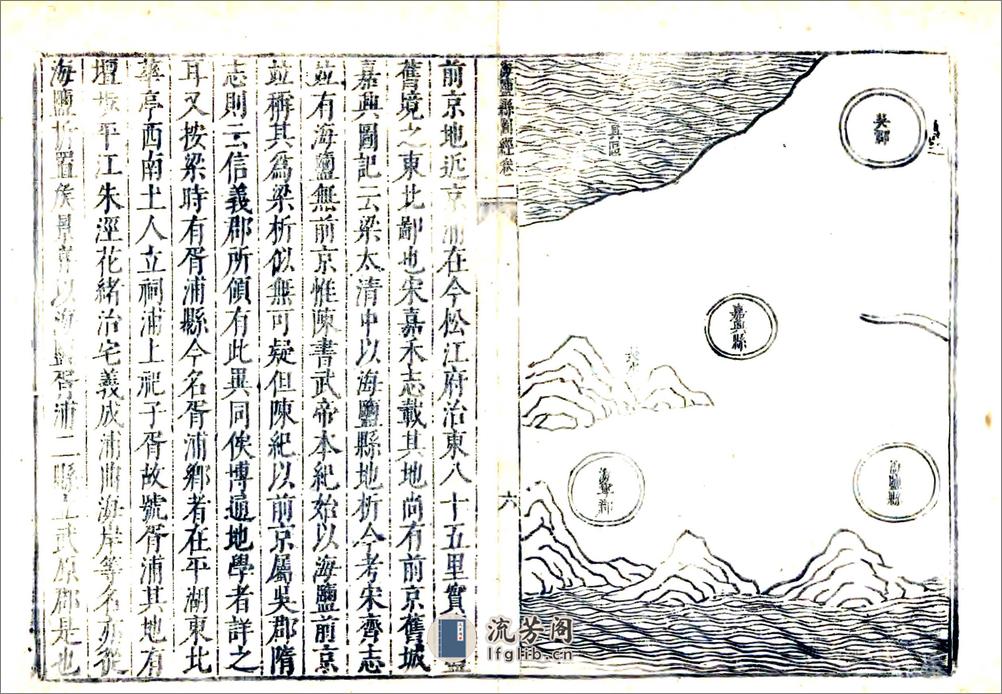 吳郡
具區
嘉興縣
海鹽縣
海寧郡
海鹽縣圖經卷一
六
前京地近京浦在今松江府治東八十五里實
舊境之東北鄙也宋嘉禾志載其地尚有前京舊城
嘉興圖記云梁太清中以海鹽縣地析今考宋齊志
竝有海鹽無前京惟陳書武帝本紀始以海鹽前京
竝稱其爲梁析似無可疑但陳紀以前京屬吳郡隋
志則云信義郡所領有此異同俟博通地學者詳之
耳又按梁時有胥浦縣今名胥浦鄉者在平湖東北
華亭西南土人立祠浦上祀子胥故號胥浦其地有
壇坂平江朱涇花緒治宅義成浦曲海岸等名亦從
海鹽析置侯景嘗以海鹽胥浦二縣立武原郡是也
流芳阁
lfglib.cn